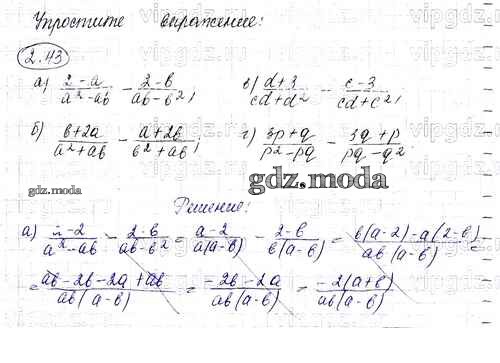 Упростите выражение:
2.43
а) (2-a)/(a²-ab) - (2-b)/(ab-b²), в) (d+3)/(cd+d²) - (c-3)/(cd+c²),
б) (b+2a)/(a²+ab) - (a+2b)/(b²+ab), г) (3p+q)/(p²-pq) - (3q+p)/(pq-q²)
gdz.moda
gdz.moda
Решение:
а) (a-2)/(a²-ab) - (2-b)/(ab-b²) = (a-2)/(a(a-b)) - (2-b)/(b(a-b)) = (b(a-2)-a(2-b))/(ab(a-b)) =
= (ab-2b-2a+ab)/(ab(a-b)) = (-2b-2a)/(ab(a-b)) = (-2(a+b))/(ab(a-b))